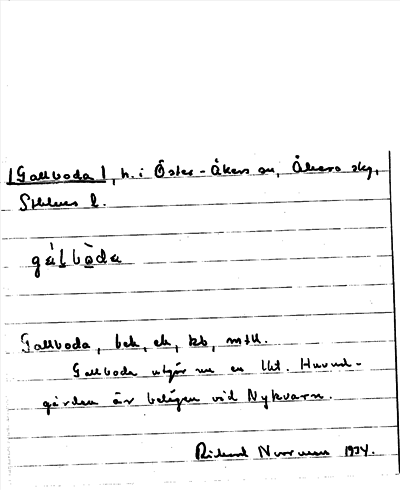 [Gallboda], h. i Öster-Åkers sn, Åkers skg,
Sthlms l.
gálbòda
Gallboda, bek, ek, kb, mtl.
Gallboda utgör nu en lht. Huvud-
gården är belägen vid Nykvarn.
Rickard Norrman 1934.